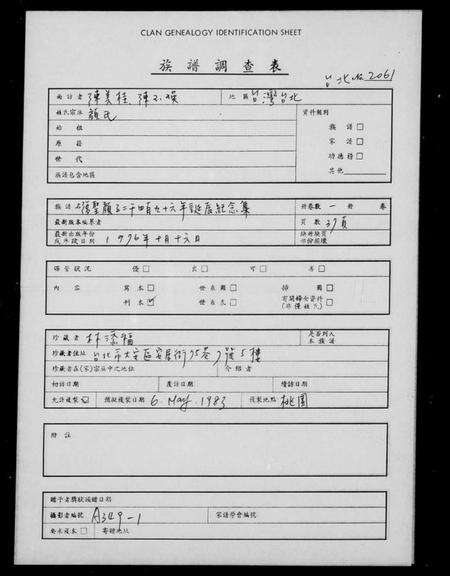 CLAN GENEALOGY IDENTIFICATION SHEET
族譜調查表
台北 No. 2061
面訪者 陳美桂、陳 地區 台灣台北
姓氏宗派 顏氏 資料類別
始祖 族譜 □
原籍 家譜 □
世代 功德冊 □
族譜包含地區 其他
族譜名 復聖顏子二千四百九十六年誕辰紀念集 冊卷數 一 冊 卷
最新版本編纂者 頁數 37頁
最新出版年份或手稿日期 1976年十月十六日 缺冊缺頁部份損壞
保管狀況 優 □ 良 □ 可 □ 劣 □
內容 寫本 □ 世系圖 □ 排圖 □
刊本 ☑ 世系表 □ 有關婦女資料(非僅姓氏) □
珍藏者 林添福 是否列入本族譜
珍藏者住址 台北市大安區安居街75巷9號5樓
珍藏者在(家)宗派中之地位 介紹者
初訪日期 度訪日期 續訪日期
允許複製 ☑ 攝製複製日期 6. May. 1983 複製地點 桃園
附註
贈予者獎狀函贈日期
攝影者編號 A349-1 宗譜學會編號
要求複本 □ 寄贈地址